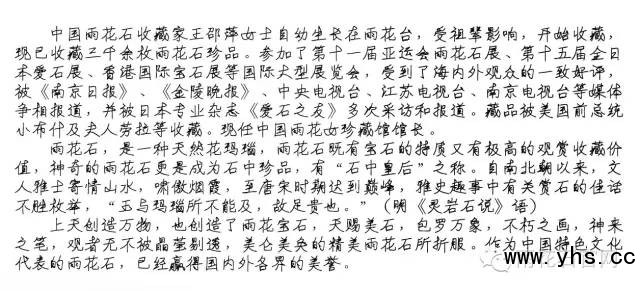 中国雨花石收藏家王邵萍女士自幼生长在雨花台，受祖辈影响，开始收藏，
现已收藏三千余枚雨花石珍品。参加了第十一届亚运会雨花石展、第十五届全日
本爱石展、香港国际宝石展等国际大型展览会，受到了海内外观众的一致好评，
被《南京日报》、《金陵晚报》、中央电视台、江苏电视台、南京电视台等媒体
争相报道，并被日本专业杂志《爱石之友》多次采访和报道。藏品被美国前总统
小布什及夫人劳拉等收藏。现任中国雨花女珍藏馆馆长。
雨花石，是一种天然花玛瑙，雨花石既有宝石的特质又有极高的观赏收藏价
值，神奇的雨花石更是成为石中珍品，有“石中皇后”之称。自南北朝以来，文
人雅士寄情山水，啸傲烟霞，至唐宋时期达到巅峰，雅史趣事中有关赏石的佳话
不胜枚举，“玉与玛瑙所不能及，故足贵也。”（明《灵岩石说》语）
上天创造万物，也创造了雨花宝石，天赐美石，包罗万象，不朽之画，神来
之笔，观者无不被晶莹剔透，美仑美奂的精美雨花石所折服。作为中国特色文化
代表的雨花石，已经赢得国内外各界的美誉。
www.yhs.cc